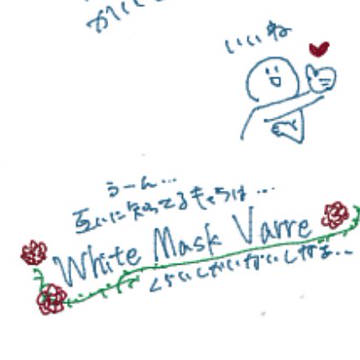 いいね
うーん...
互いに知ってるキャラは...
White Mask Varre
くらいしかいないしなぁ...